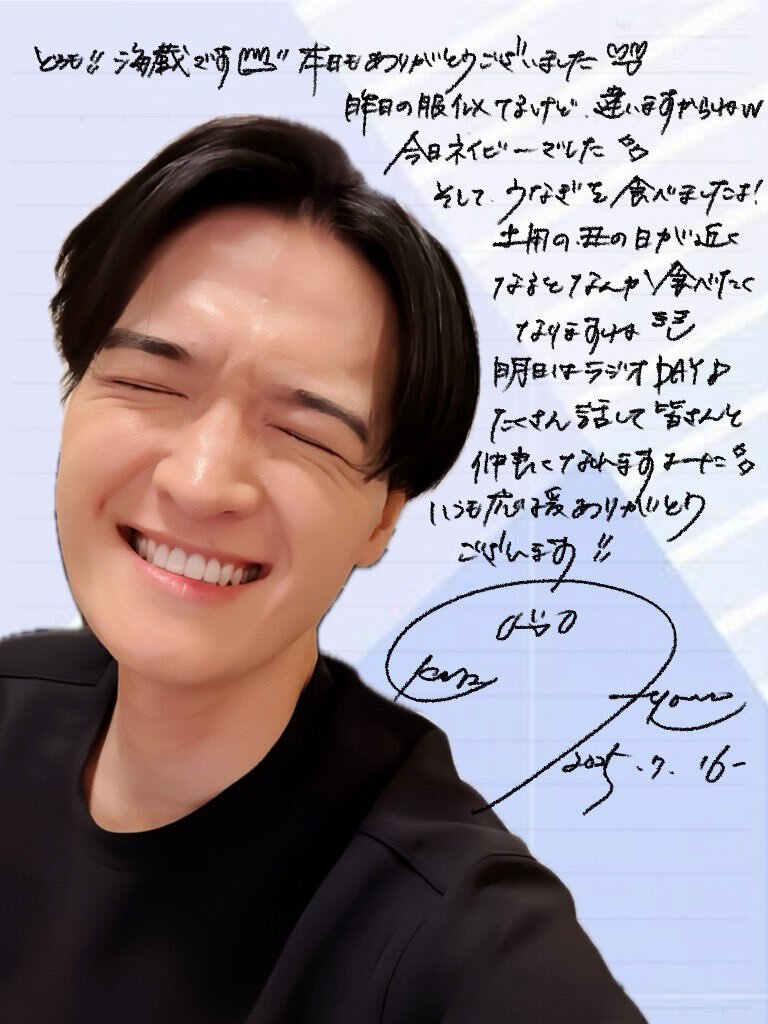 どうも!! 海蔵です!! 本日もありがとうございました
昨日の服似てるけど、違いますからねw
今日ネイビーでした
そして、うなぎを食べましたよ!
土用の丑の日が近く
なるとなんか食べたく
なりますね
明日はラジオDAY♪
たくさん話して皆さんと
仲良くなれますよーに
いつも応援ありがとう
ございます!!
2025.7.16-